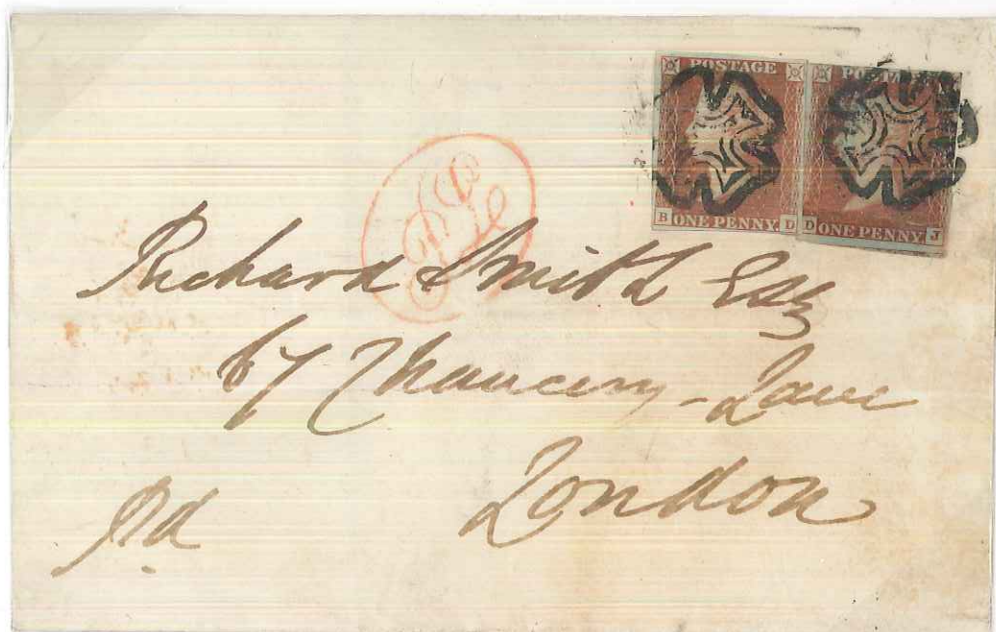 POSTAGE
B ONE PENNY D
D ONE PENNY J
Richard Smith Esq
67 Chancery-Lane
London
Pd